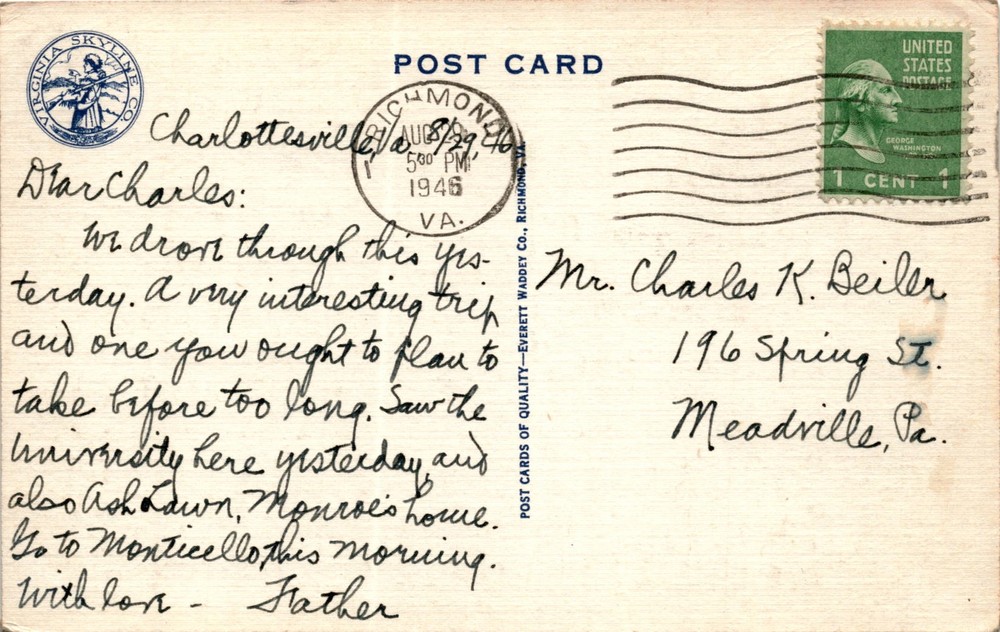 VIRGINIA SKYLINE CO.
POST CARD
RICHMOND
AUG 29
5 30 PM
1946
VA.
UNITED
STATES
POSTAGE
GEORGE
WASHINGTON
1 CENT 1
Charlottesville, Va. 8/29,
Dear Charles:
We drove through this yes-
terday. A very interesting trip
and one you ought to plan to
take before too long. Saw the
University here yesterday, and
also Ash Lawn, Monroe's home.
Go to Monticello this morning.
With love - Father
POST CARDS OF QUALITY—EVERETT WADDEY CO., RICHMOND, VA.
Mr. Charles K. Beiler
196 Spring St.
Meadville, Pa.